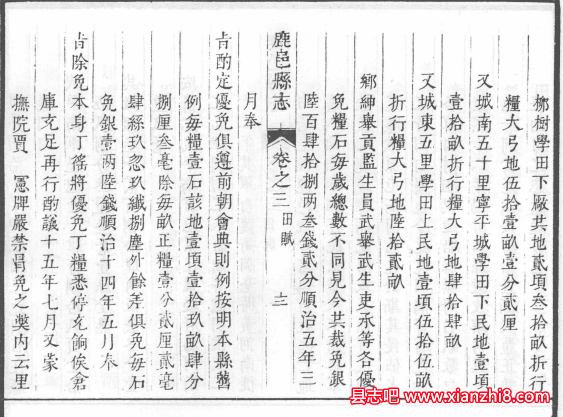 槨樹學田下厫共地貳項叁拾畝折行
糧大弓地伍拾壹畝壹分貳厘
又城南五十里寧平城學田下民地壹項
壹拾畝折行糧大弓地肆拾肆畝
又城東五里學田上民地壹項伍拾伍畝
折行糧大弓地陸拾貳畝
鄉紳舉貢監生員武舉武生吏承等各優
免糧石每歲總數不同見今共裁免銀
陸百肆拾捌兩叁錢貳分順治五年三
鹿邑縣志 卷之三 田賦 十二
月奉
旨酌定優免俱遵前朝會典則例按明本縣舊
例每糧壹石該地壹項壹拾玖畝肆分
捌厘叁毫除每畝正糧壹分貳厘貳毫
肆絲玖忽玖纖捌塵外餘差俱免每石
免銀壹兩陸錢順治十四年五月奉
旨除免本身丁徭將優免丁糧悉停充餉俟倉
庫充足再行酌議十五年七月又蒙
撫院賈 憲牌嚴禁冒免之獘內云里
县志吧-www.xianzhi8.com